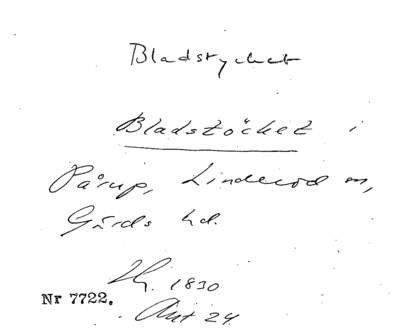 Bladstycket
Bladstöcket i
Pårup, Linderöd sn,
Gärds hd.
1830
Nr 7722.
Ant 24